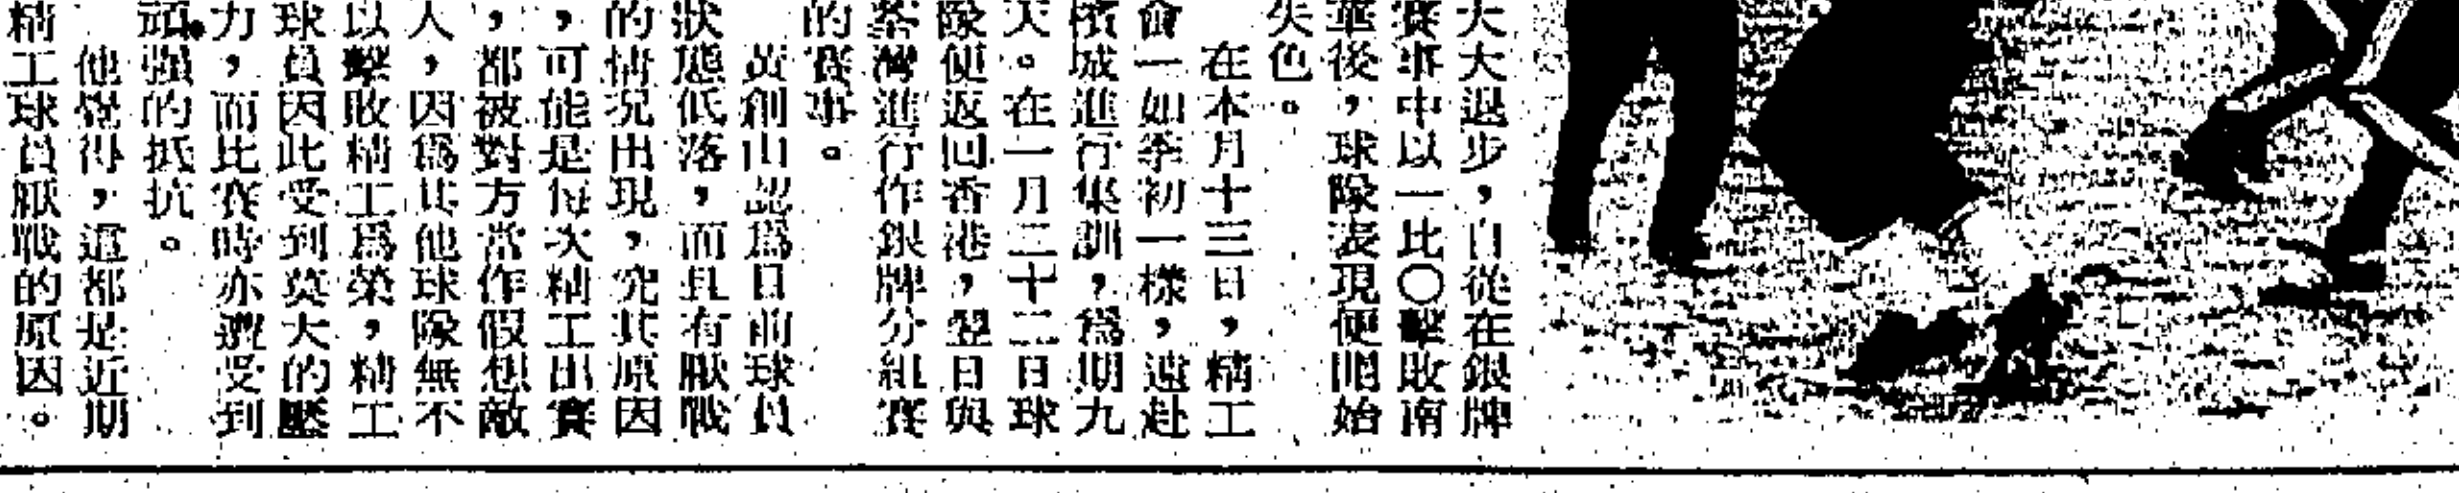 大大退步，自從在銀牌
賽事中以一比〇擊敗南
華後，球隊表現便開始
失色。
在本月十三日，精工
會一如季初一樣，遠赴
檳城進行集訓，爲期九
天。在一月二十二日球
隊便返回香港，翌日與
荃灣進行作銀牌分組賽
的賽事。
黃創山認爲目前球員
狀態低落，而且有厭戰
的情况出現，究其原因
，可能是每次精工出賽
，都被對方當作假想敵
人，因爲其他球隊無不
以擊敗精工爲榮，精工
球員因此受到莫大的壓
力，而比賽時亦遭受到
頑強的抵抗。
他覺得，這都是近期
精工球員厭戰的原因。